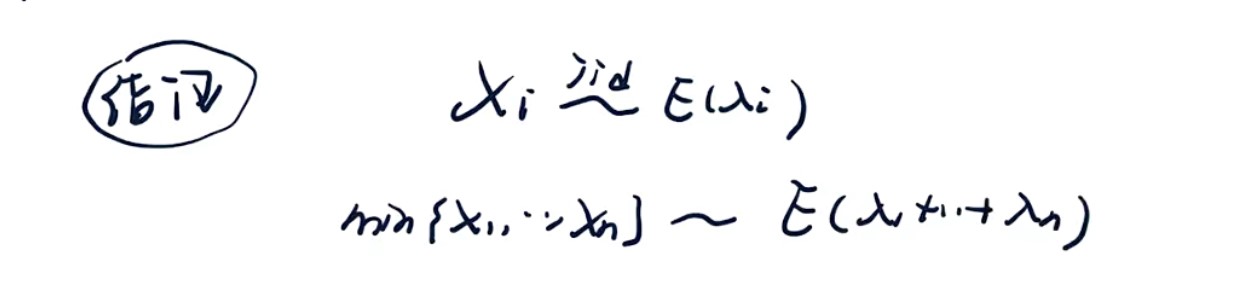 结论 Xᵢ iid~ E(λᵢ)
min{X₁, ⋯, Xₙ} ~ E(λ₁+⋯+λₙ)